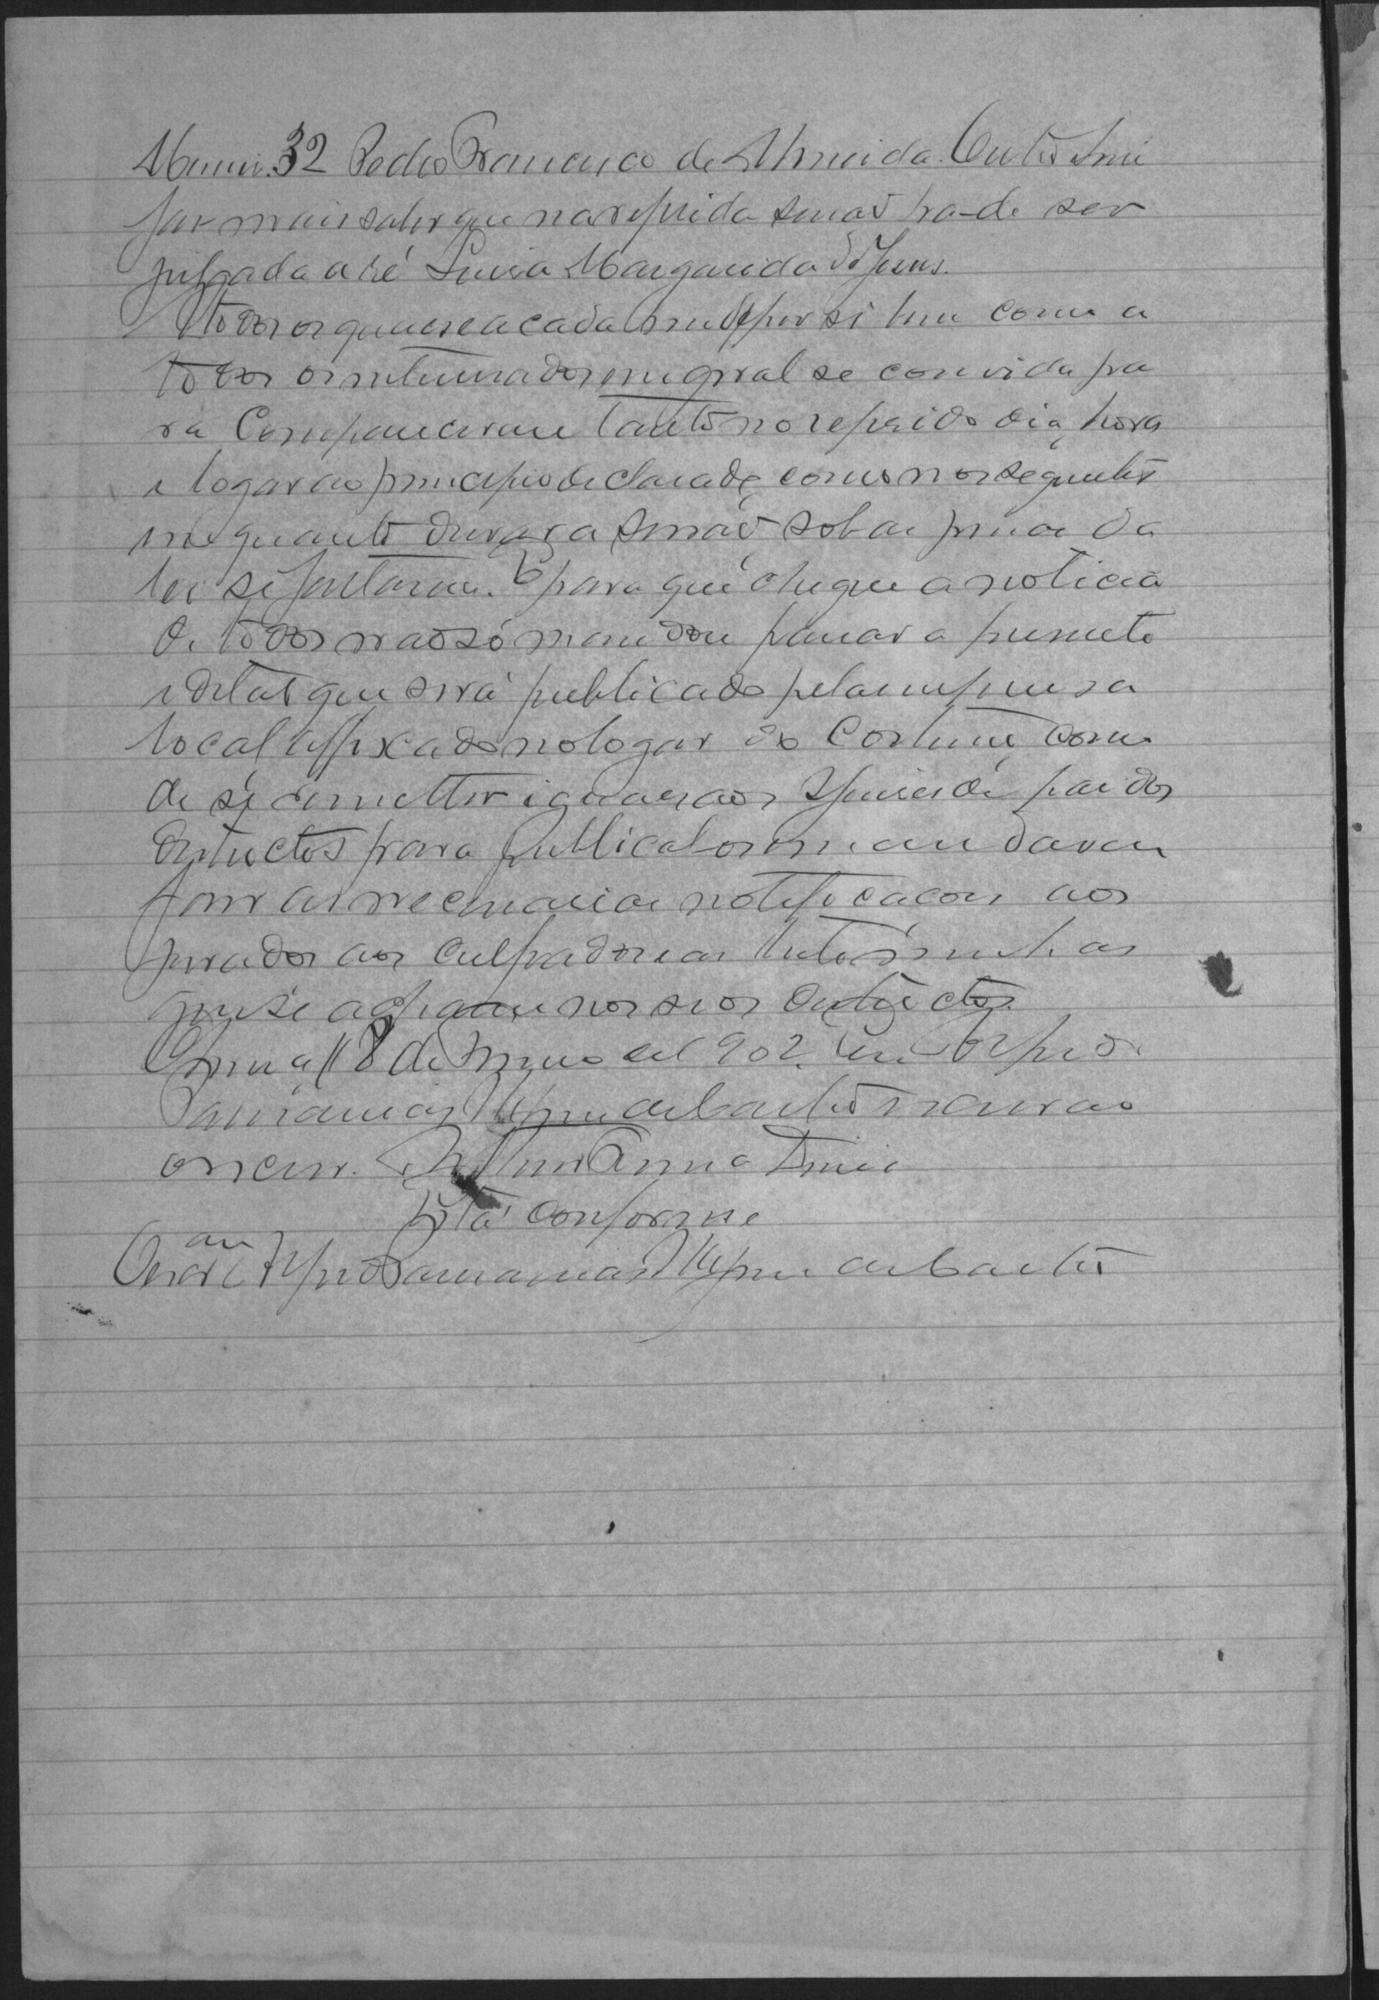 32 Pedro Francisco de Almeida. Outro sim
faz mais saber que na referida sessão ha-de ser
julgada a ré Luisa Margarida de Jesus.
A todos os quaes e a cada um de per si bem como a
todos os interessados em geral se convida pa
ra Comparecerem tanto no referido dia, hora
e logar ao principio declarado, como nos seguintes
em quanto durar a sessão sob as penas da
lei se faltarem. E para que chegue a noticia
de todos não só mandou passar o presente
edital que será publicado pela imprensa
local e affixado no logar do Costume como
de se remetter iguaes aos dos
districtos para publical-os e mandarem
fazer as necessarias notificações aos
jurados aos culpados e as testemunhas
que se acharem nos seos districtos
18 de de 1902. Eu
escrivão
o escrevi.
Está conforme